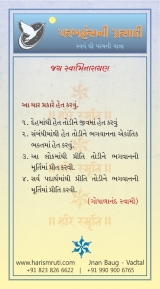 પરમહંસની પ્રસાદી
જય સ્વામિનારાયણ
આ ચાર પ્રકારે હેત કરવું.
૧. દેહમાંથી હેત તોડીને જીવમાં હેત કરવું
૨. સંબંધીમાંથી હેત તોડીને ભગવાનના એકાંતિક
ભક્તમાં હેત કરવું.
૩. આ લોકમાંથી પ્રીતિ તોડીને ભગવાનની
મૂર્તિમાં પ્રીતિ કરવી.
૪. સર્વ પદાર્થમાંથી પ્રીતિ તોડીને ભગવાનની
મૂર્તિમાં પ્રીતિ કરવી.
(ગોપાળાનંદ સ્વામી)
|| હરિ સ્મૃતિ ||
www.harismruti.com Jnan Baug - Vadtal
+91 823 826 6622 | +91 990 900 6765